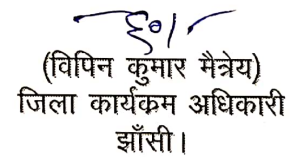 ह०/-
(विपिन कुमार मैत्रेय)
जिला कार्यक्रम अधिकारी
झाँसी।